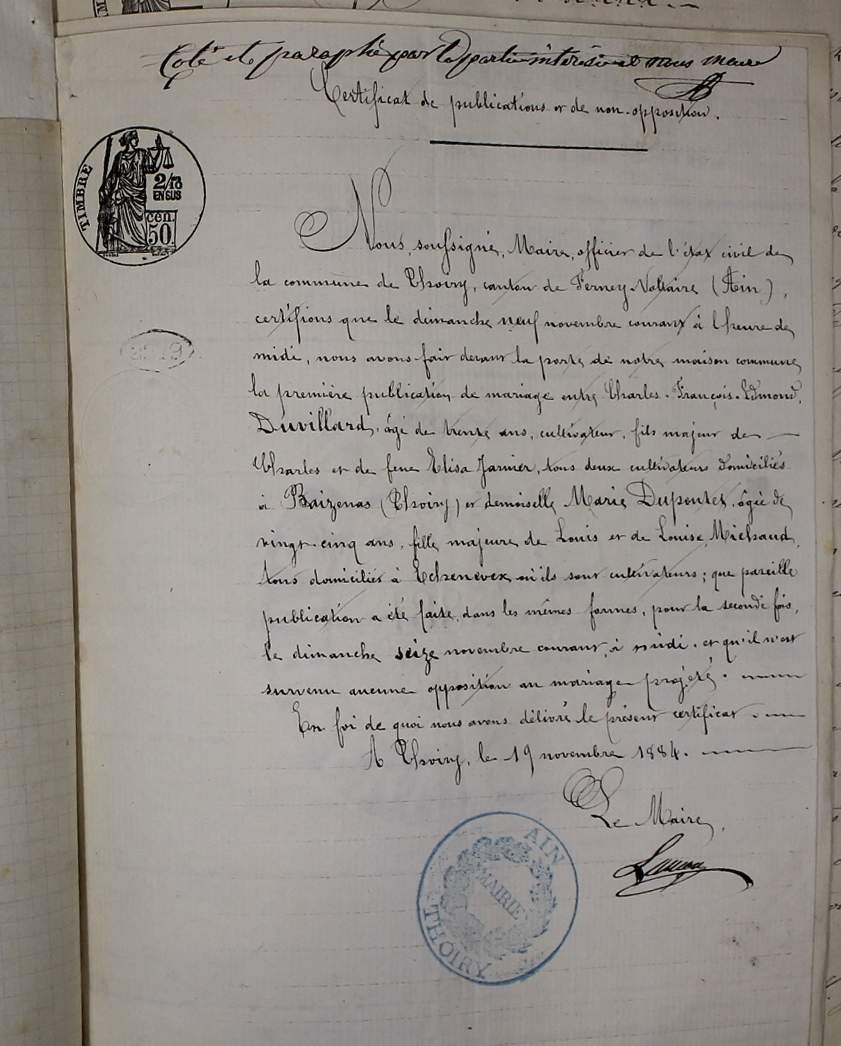 Coté et paraphé par la partie intéressée et nous maire
Certificat de publications et de non-opposition.
TIMBRE
2/10
EN SUS
CEN.
50
Nous, soussigné, Maire, officier de l'état civil de
la commune de Thoiry, canton de Ferney-Voltaire (Ain),
certifions que le dimanche neuf novembre courant à l'heure de
midi, nous avons fait devant la porte de notre maison commune
la première publication de mariage entre Charles-François-Edmond
Duvillard, âgé de trente ans, cultivateur, fils majeur de
Charles et de feue Elisa Janier, tous deux cultivateurs domiciliés
à Baizenas (Thoiry) et demoiselle Marie Dupontet, âgée de
vingt-cinq ans, fille majeure de Louis et de Louise Michaud,
tous domiciliés à Echenevex où ils sont cultivateurs; que pareille
publication a été faite, dans les mêmes formes, pour la seconde fois,
le dimanche seize novembre courant, à midi, et qu'il n'est
survenu aucune opposition au mariage projeté.
En foi de quoi nous avons délivré le présent certificat.
A Thoiry, le 19 novembre 1884.
Le Maire,
AIN
MAIRIE
THOIRY